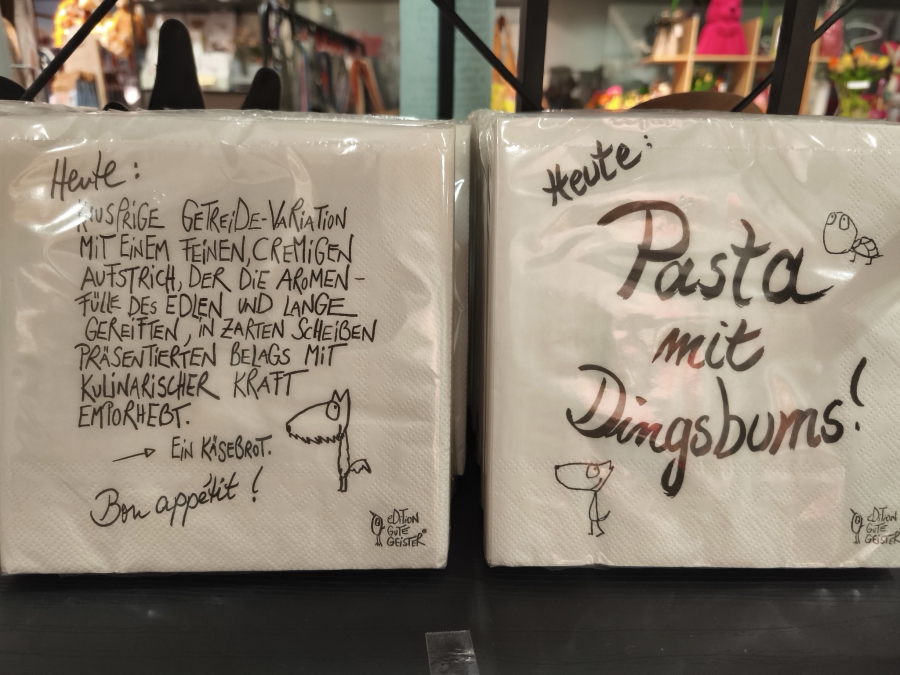 Heute:
KNUSPRIGE GETREIDE-VARIATION
MIT EINEM FEINEN, CREMIGEN
AUFSTRICH, DER DIE AROMEN-
FÜLLE DES EDLEN UND LANGE
GEREIFTEN, IN ZARTEN SCHEIBEN
PRÄSENTIERTEN BELAGS MIT
KULINARISCHER KRAFT
EMPORHEBT.
→ EIN KÄSEBROT.
Bon appétit!
EDITION
GUTE
GEISTER
Heute:
Pasta
mit
Dingsbums!
EDITION
GUTE
GEISTER